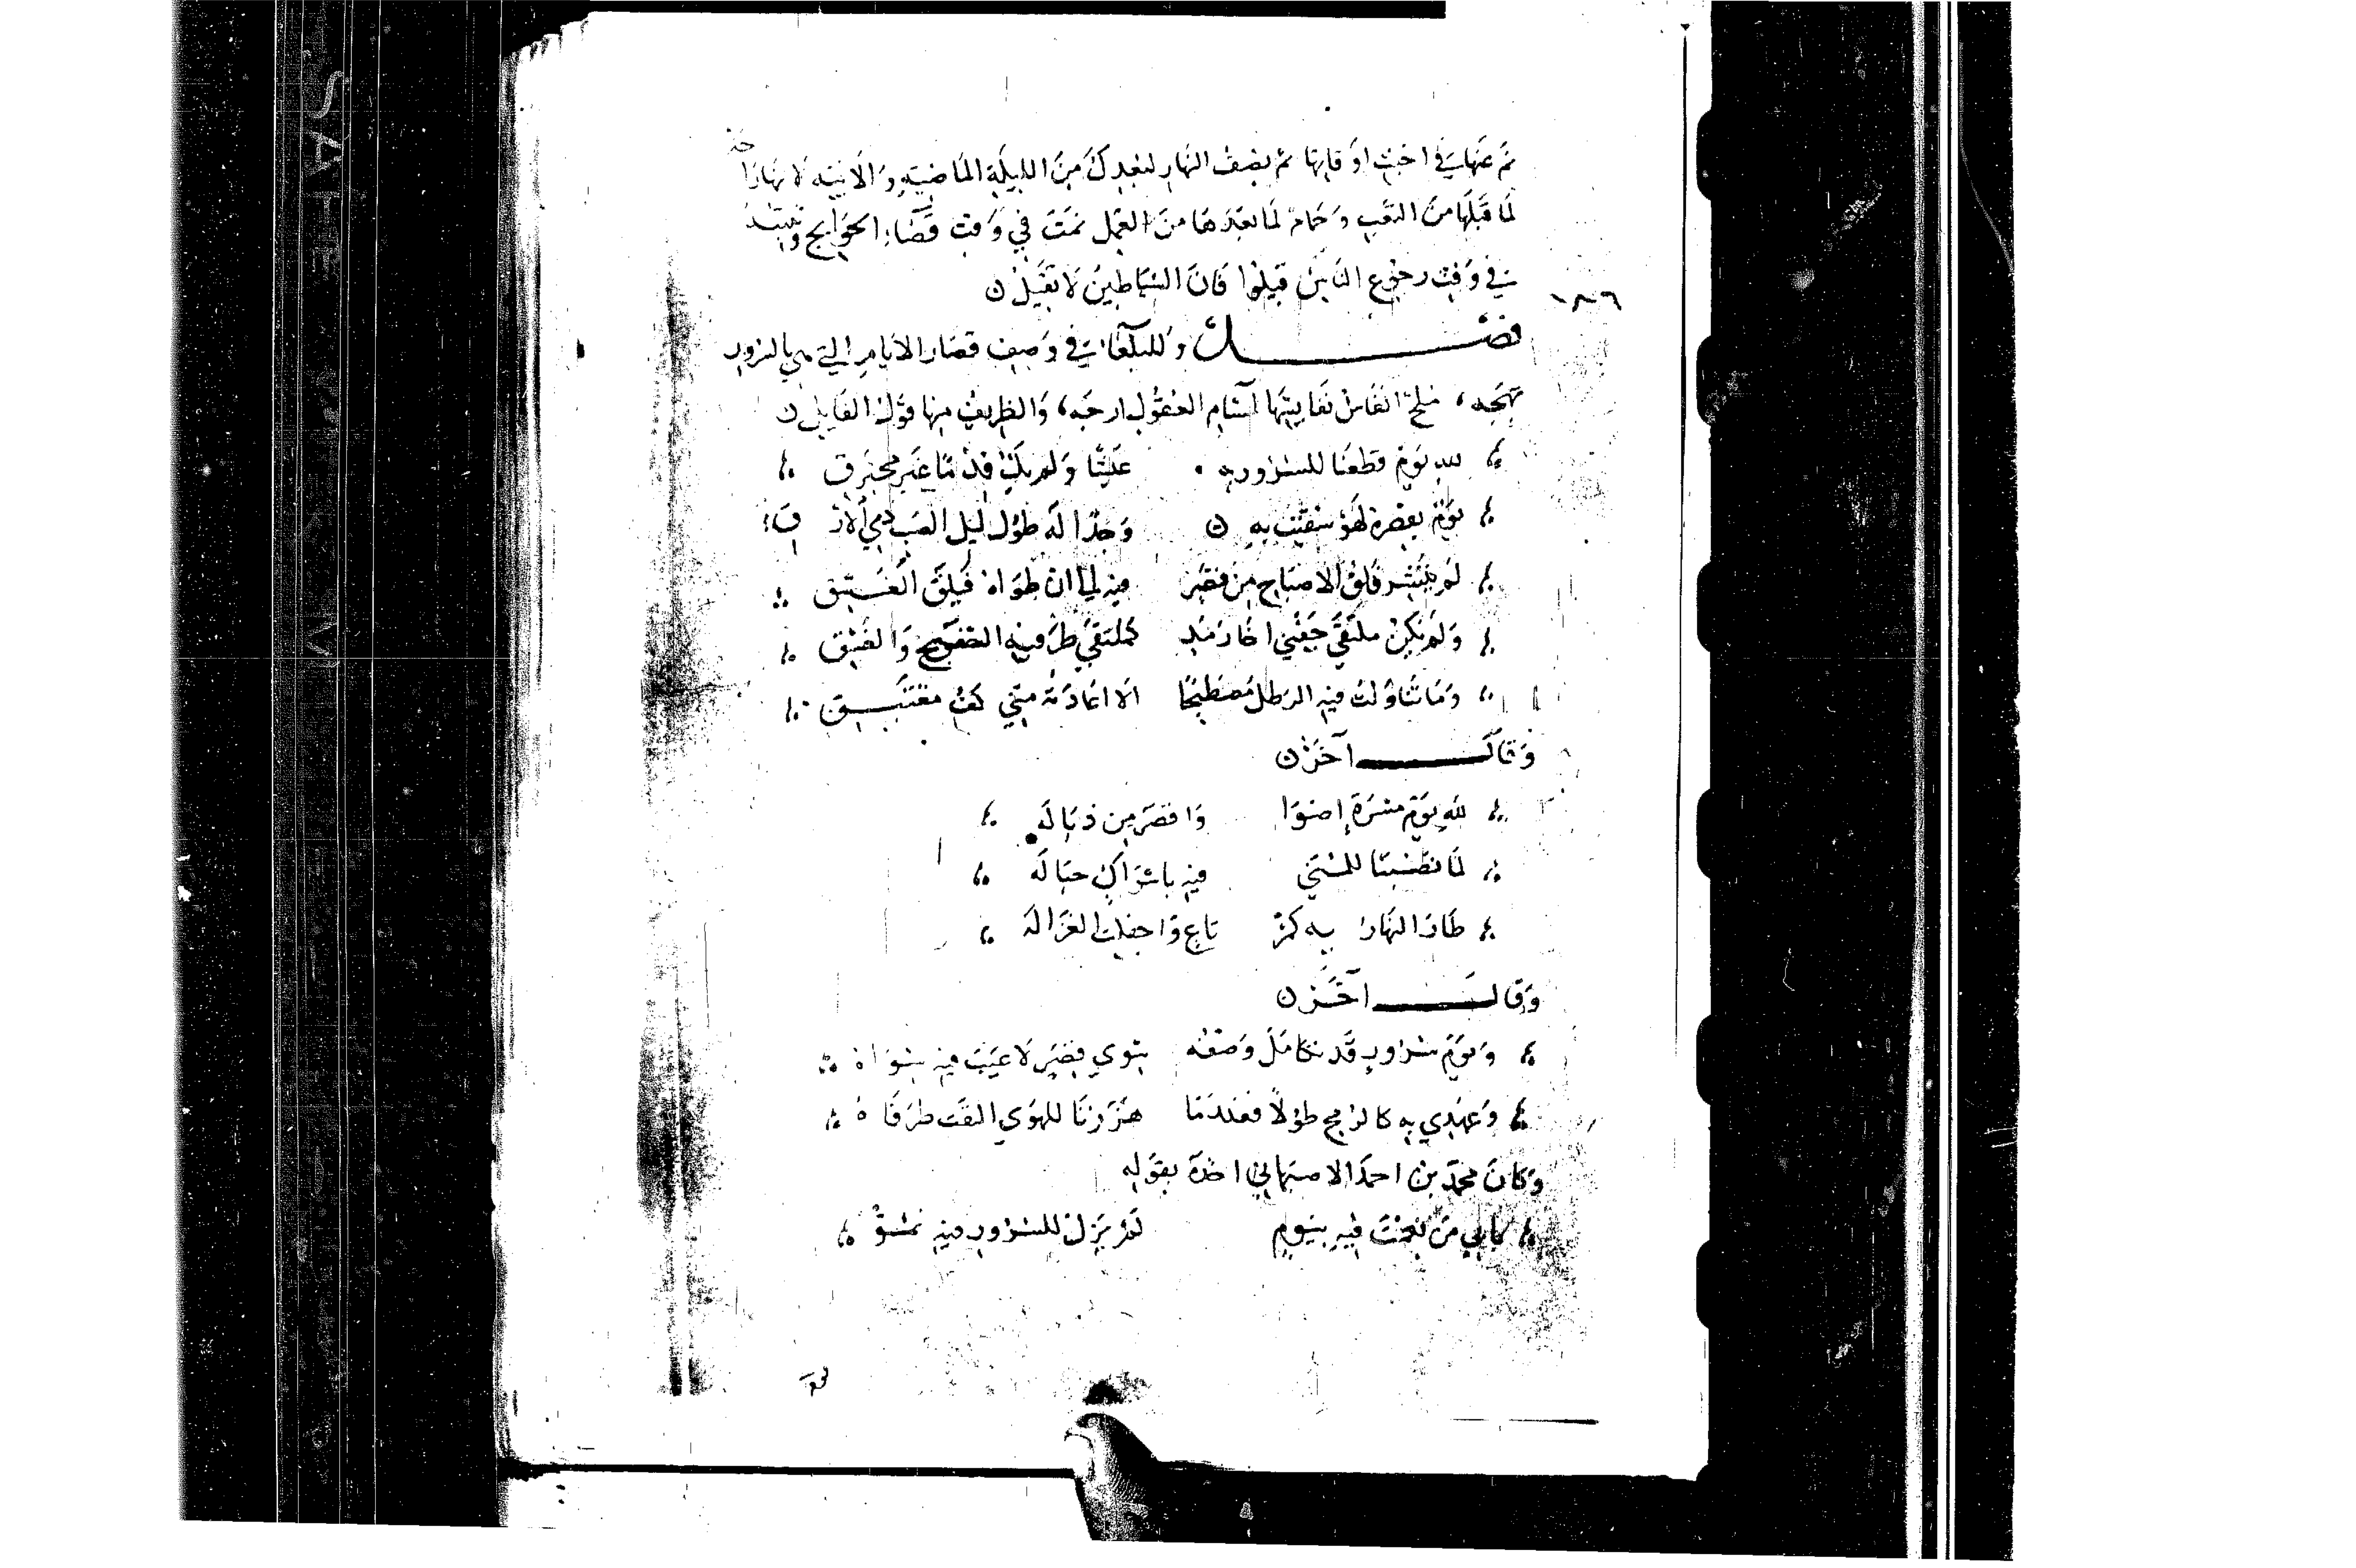 ثم عنها في اخبث اوقاتها ثم نصف النهار لبعدك من الليلة الماضية والاتية لانها راحة
لما قبلها من التعب وجمام لما بعدها من العمل نمت في وقت قضاء الحوايج وتنتبه
في وقت رجوع الناس قيلوا فان الشياطين لا تقيل ن
١٨٦
فصل وللبلغاء في وصف قصار الايام التي هي بالسرور
بهجه، ملح انفاس نفايسها لمشام العقول ارجه، والظريف منها قول القايل ن
لله يوم قطعنا للسرور به علينا ولم يك قدما غير مخترق
يوم بعصرة لهو سقيت به ن وجدا له طول ليل الصب ذي الارق
لم ينتشر فلق الاصباح من قصر فيه لنا ان طواه فيلق الغسق
ولم تكن ملتقى جفني اخا رمد كملتقى طرفيه الصبح والغسق
وما تناولت فيه الرطل مصطبحا الا اعادته مني كف مغتبق
وقال آخر ن
لله يوم مسرة اضوا واقصر من ذباله
لما نصبنا للمنى فيه باشراك حباله
طار النهار به كمر تاع واجفلت الغزاله
وقال آخر ن
ويوم سرور قد تكامل وصفه سوى قصر لا عيب فيه سواه
وعهدي به كالرمح طولا فعندما هززنا للهوى التقت طرفاه
وكان محمد بن احمد الاصبهاني اخذه بقوله
بابي من نعمت فيه بيوم لم يزل للسرور فيه نمو